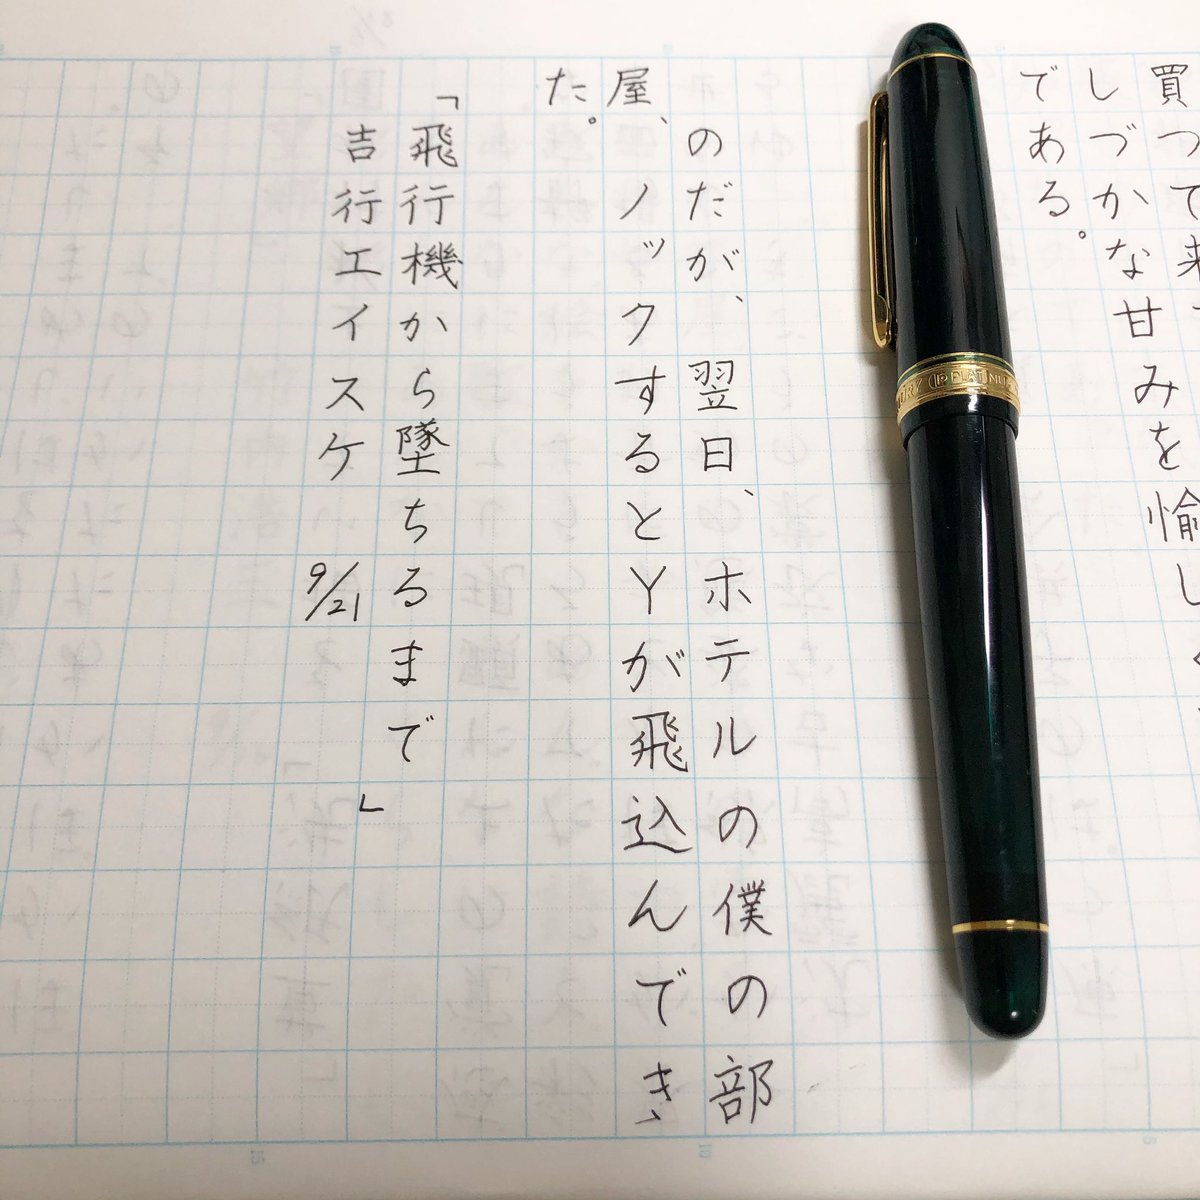 買つて来
しづかな甘みを愉し
である。
のだが、翌日、ホテルの僕の部
屋、ノックするとYが飛込んでき
た。
「飛行機から墜ちるまで」
吉行エイスケ 9/21
PLATINU
5
10
15